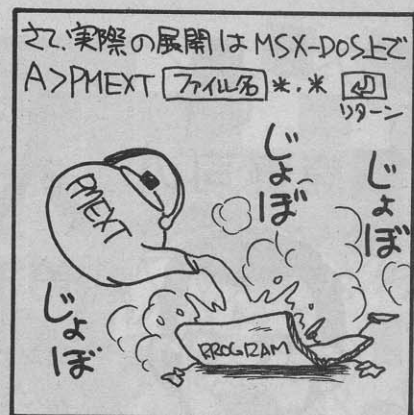 さて、実際の展開はMSX-DOS上で
A>PMEXT ファイル名 *.* ⏎
リターン
じょぼ
じょぼ
PMEXT
じょぼ
PROGRAM